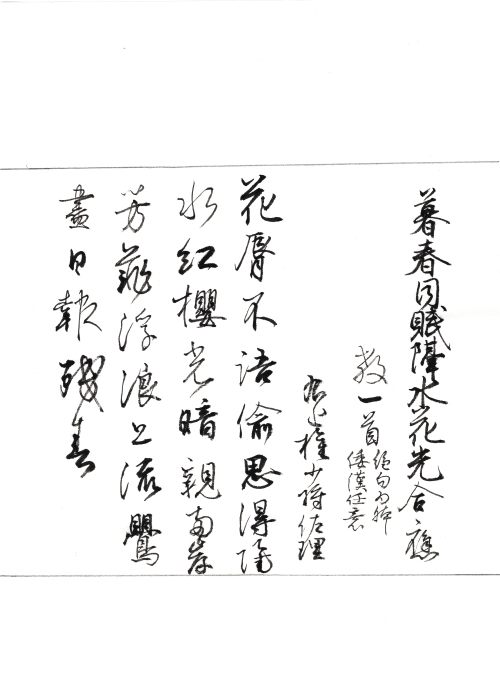 暮春同賦隔水花光合應
教一首 絶句為躰
倭漢任意
右近権少将佐理
花脣不語偷思得隔
水紅櫻光暗親両岸
芳菲浮浪上流鸎
盡日報残春